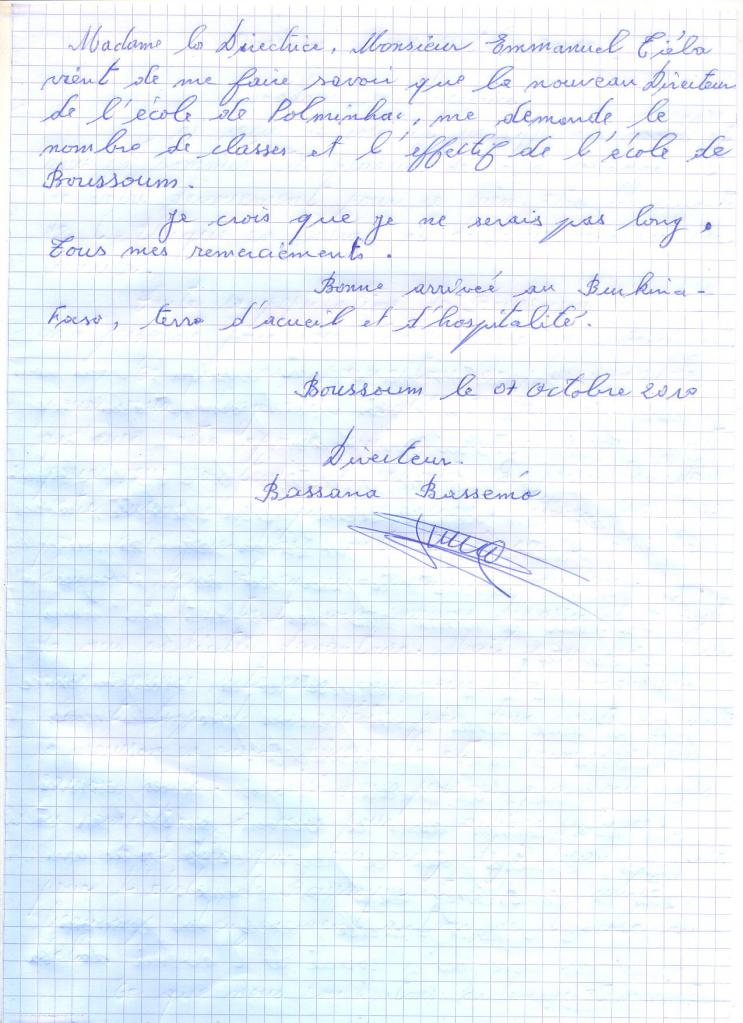 Madame la Directrice, Monsieur Emmanuel Tiéla
vient de me faire savoir que le nouveau Directeur
de l'école de Polminhac, me demande le
nombre de classes et l'effectif de l'école de
Boussoum.
Je crois que je ne serais pas long.
Tous mes remerciements.
Bonne arrivée au Burkina-
Faso, terre d'acueil et d'hospitalité.
Boussoum le 07 Octobre 2010
Directeur.
Bassana Bassémo